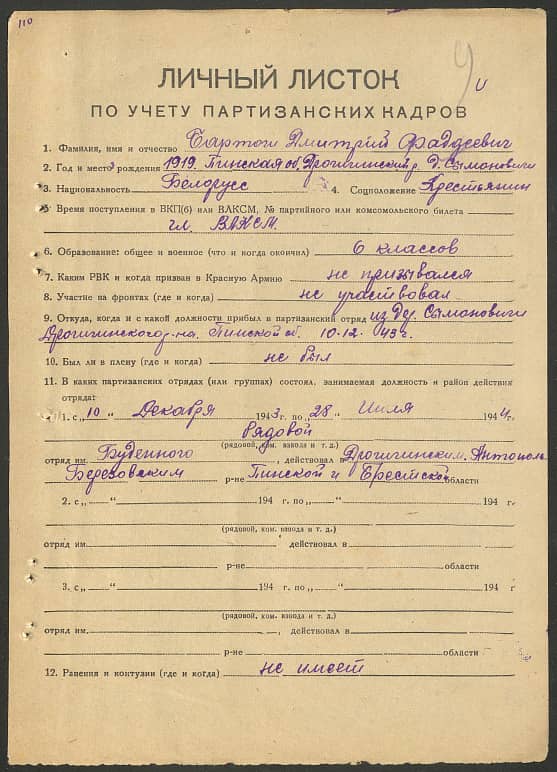 110
ЛИЧНЫЙ ЛИСТОК
ПО УЧЕТУ ПАРТИЗАНСКИХ КАДРОВ
1. Фамилия, имя и отчество Бартош Дмитрий Фаддеевич
2. Год и место рождения 1919. Пинская об. Дрогичинский р. д. Сымоновичи
3. Национальность Белорусс 4. Соцположение Крестьянин
5. Время поступления в ВКП(б) или ВЛКСМ, № партийного или комсомольского билета
чл. ВЛКСМ.
6. Образование: общее и военное (что и когда окончил) 6 классов
7. Каким РВК и когда призван в Красную Армию не призывался
8. Участие на фронтах (где и когда) не участвовал
9. Откуда, когда и с какой должности прибыл в партизанский отряд из дер Сымоновичи
Дрогичинского р-на. Пинской об. 10.12.43 г.
10. Был ли в плену (где и когда) не был
11. В каких партизанских отрядах (или группах) состоял, занимаемая должность и район действия
отряда:
1. с „10" Декабря 1943 г. по „28" Июля 1944 г.
Рядовой
(рядовой, ком. взвода и т. д.)
отряд им. Буденного, действовал в Дрогичинским. Антополь
Березовским р-не Пинской и Брестской области
2. с „ " 194 г. по „ " 194 г.
(рядовой, ком. взвода и т. д.)
отряд им. действовал в
р-не области
3. с „ " 194 г. по „ " 194 г
(рядовой, ком. взвода и т. д.)
отряд им. , действовал в
р-не области
12. Ранения и контузии (где и когда) не имеет